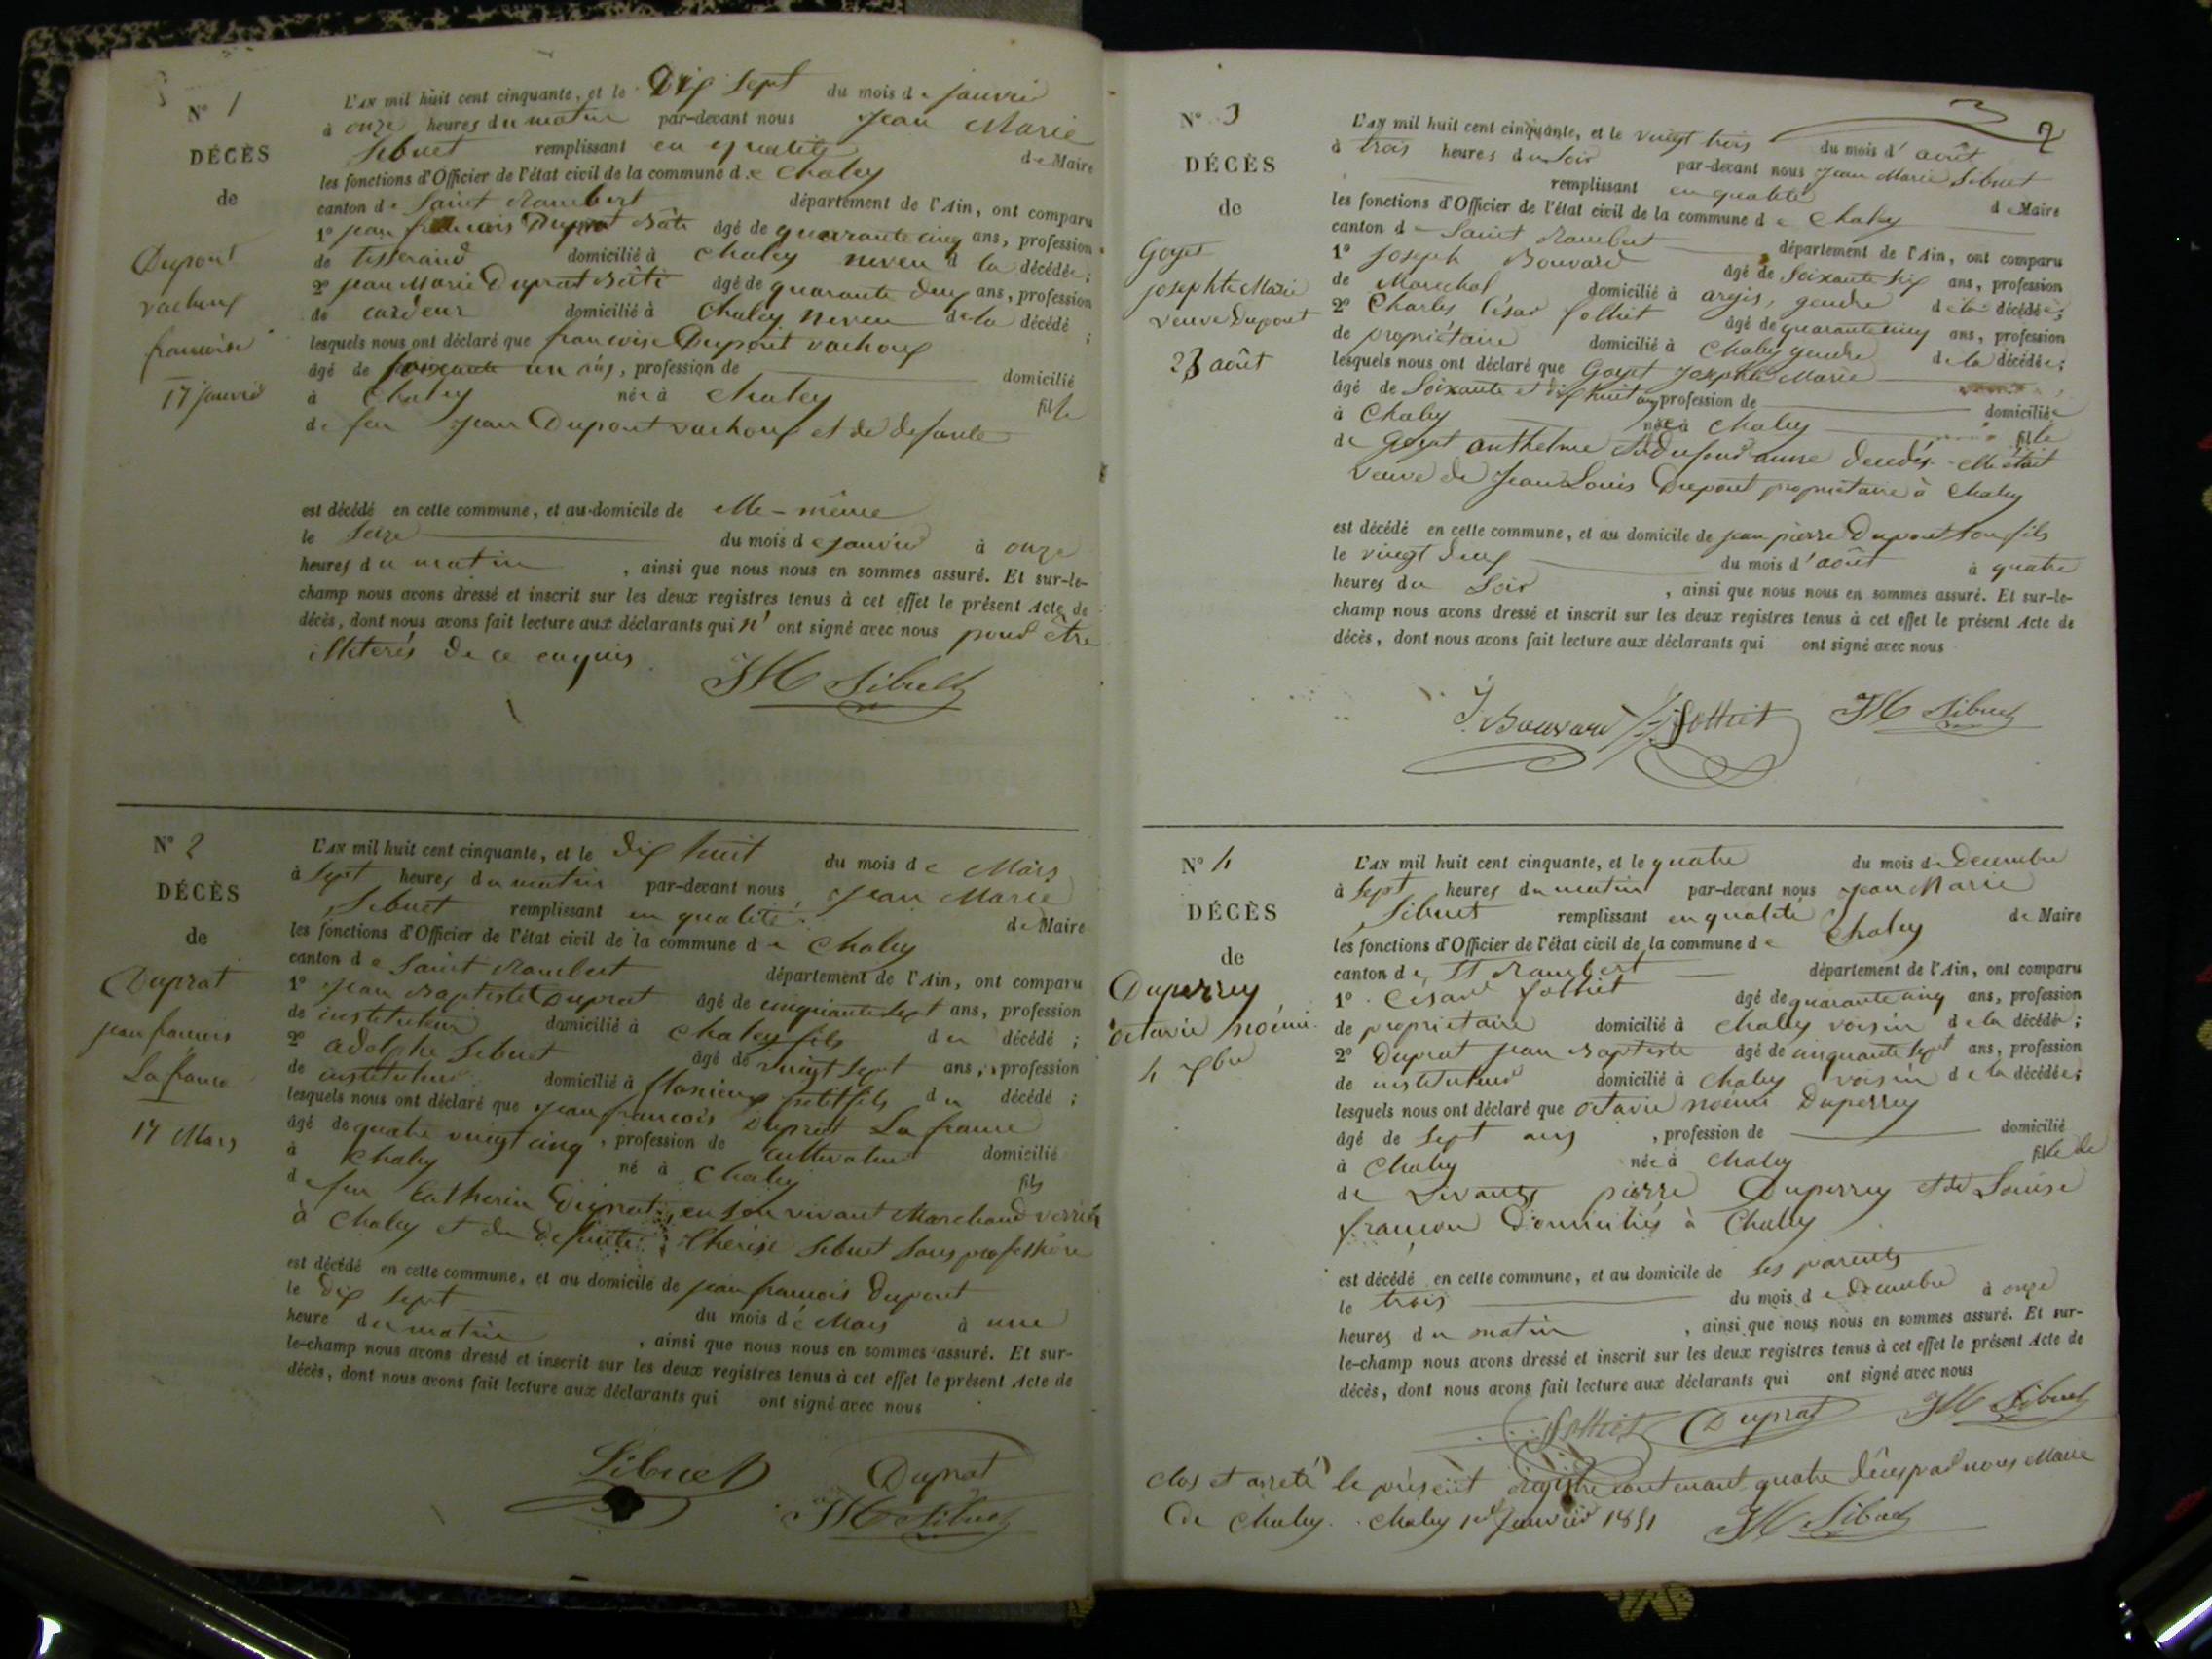 N° 1
DÉCÈS
de
Dupont
vachoux
francoise
17 janvier
L'AN mil huit cent cinquante, et le Dix Sept du mois de janvier
à onze heures du matin par-devant nous Jean Marie
Sibuet remplissant en qualité de Maire
les fonctions d'Officier de l'état civil de la commune de Chaley
canton de Saint Rambert département de l'Ain, ont comparu
1° jean francois Duprat âgé de quarante cinq ans, profession
de tisserand domicilié à Chaley neveu d la décédée;
2° jean Marie Duprat âgé de quarante deux ans, profession
de cardeur domicilié à Chaley neveu de la décédé ;
lesquels nous ont déclaré que francoise Dupont vachoux
âgé de soixante un ans, profession de domicilié
à Chaley née à Chaley fille
de feu Jean Dupont vachoux et de defunte
est décédé en cette commune, et au domicile de elle-même
le Seize du mois de janvier à onze
heures du matin , ainsi que nous nous en sommes assuré. Et sur-le-
champ nous avons dressé et inscrit sur les deux registres tenus à cet effet le présent Acte de
décès, dont nous avons fait lecture aux déclarants qui n' ont signé avec nous pour être
illiterés de ce enquis.
JM Sibuet
N° 2
DÉCÈS
de
Duprat
jean francois
La france
17 Mars
L'AN mil huit cent cinquante, et le dix huit du mois de Mars
à Sept heures du matin par-devant nous Jean Marie
Sibuet remplissant en qualité de Maire
les fonctions d'Officier de l'état civil de la commune de Chaley
canton de Saint Rambert département de l'Ain, ont comparu
1° Jean Baptiste Duprat âgé de cinquante sept ans, profession
de instituteur domicilié à Chaley fils du décédé ;
2° adolphe Sibuet âgé de vingt sept ans, profession
de instituteur domicilié à petit fils du décédé ;
lesquels nous ont déclaré que Jean francois Duprat La france
âgé de quatre vingt cinq , profession de cultivateur domicilié
à Chaley né à Chaley fils
de feu Catherin en son vivant Marchand
à Chaley et de defunte Thérèse Sibuet sans profession
est décédé en cette commune, et au domicile de jean francois Dupont
le dix sept du mois de Mars à une
heure du matin , ainsi que nous nous en sommes assuré. Et sur-
le-champ nous avons dressé et inscrit sur les deux registres tenus à cet effet le présent Acte de
décès, dont nous avons fait lecture aux déclarants qui ont signé avec nous
Sibuet Duprat
JM Sibuet
2
N° 3
DÉCÈS
de
Goyet
josephte Marie
veuve Dupont
23 août
L'AN mil huit cent cinquante, et le vingt trois du mois d'août
à trois heures du Soir par-devant nous Jean Marie Sibuet
remplissant en qualité de Maire
les fonctions d'Officier de l'état civil de la commune de Chaley
canton de Saint Rambert département de l'Ain, ont comparu
1° Joseph Bouvard âgé de Soixante Six ans, profession
de Marechal domicilié à argis, gendre de la décédée;
2° Charles César folliet âgé de quarante cinq ans, profession
de propriétaire domicilié à Chaley gendre de la décédée;
lesquels nous ont déclaré que Goyet Josephte Marie
âgé de Soixante et dix huit ans profession de domiciliée
à Chaley née à Chaley fille
de Goyet anthelme et anne decedés. Elle était
veuve de Jean Louis Dupont propriétaire à Chaley
est décédé en cette commune, et au domicile de jean pierre Dupont Son fils
le vingt deux du mois d'août à quatre
heures du Soir , ainsi que nous nous en sommes assuré. Et sur-le-
champ nous avons dressé et inscrit sur les deux registres tenus à cet effet le présent Acte de
décès, dont nous avons fait lecture aux déclarants qui ont signé avec nous
J. Bouvard folliet JM Sibuet
N° 4
DÉCÈS
de
Duperrey
octavie noémi
4 Xbre
L'AN mil huit cent cinquante, et le quatre du mois de Decembre
à Sept heures du matin par-devant nous Jean Marie
Sibuet remplissant en qualité de Maire
les fonctions d'Officier de l'état civil de la commune de Chaley
canton de St Rambert département de l'Ain, ont comparu
1° César folliet âgé de quarante cinq ans, profession
de propriétaire domicilié à Chaley voisin de la décédée;
2° Duprat Jean Baptiste âgé de cinquante Sept ans, profession
de instituteur domicilié à Chaley voisin de la décédée;
lesquels nous ont déclaré que octavie noémi Duperrey
âgé de Sept ans , profession de domicilié
à Chaley née à Chaley fille de
de vivants pierre Duperrey et de Louise
francon domiciliés à Chaley
est décédé en cette commune, et au domicile de ses parents
le trois du mois de decembre à onze
heures du matin , ainsi que nous nous en sommes assuré. Et sur-
le-champ nous avons dressé et inscrit sur les deux registres tenus à cet effet le présent Acte de
décès, dont nous avons fait lecture aux déclarants qui ont signé avec nous
folliet Duprat JM Sibuet
clos et arreté le présent registre contenant quatre décès par nous Maire
de Chaley. Chaley 1er janvier 1851 JM Sibuet